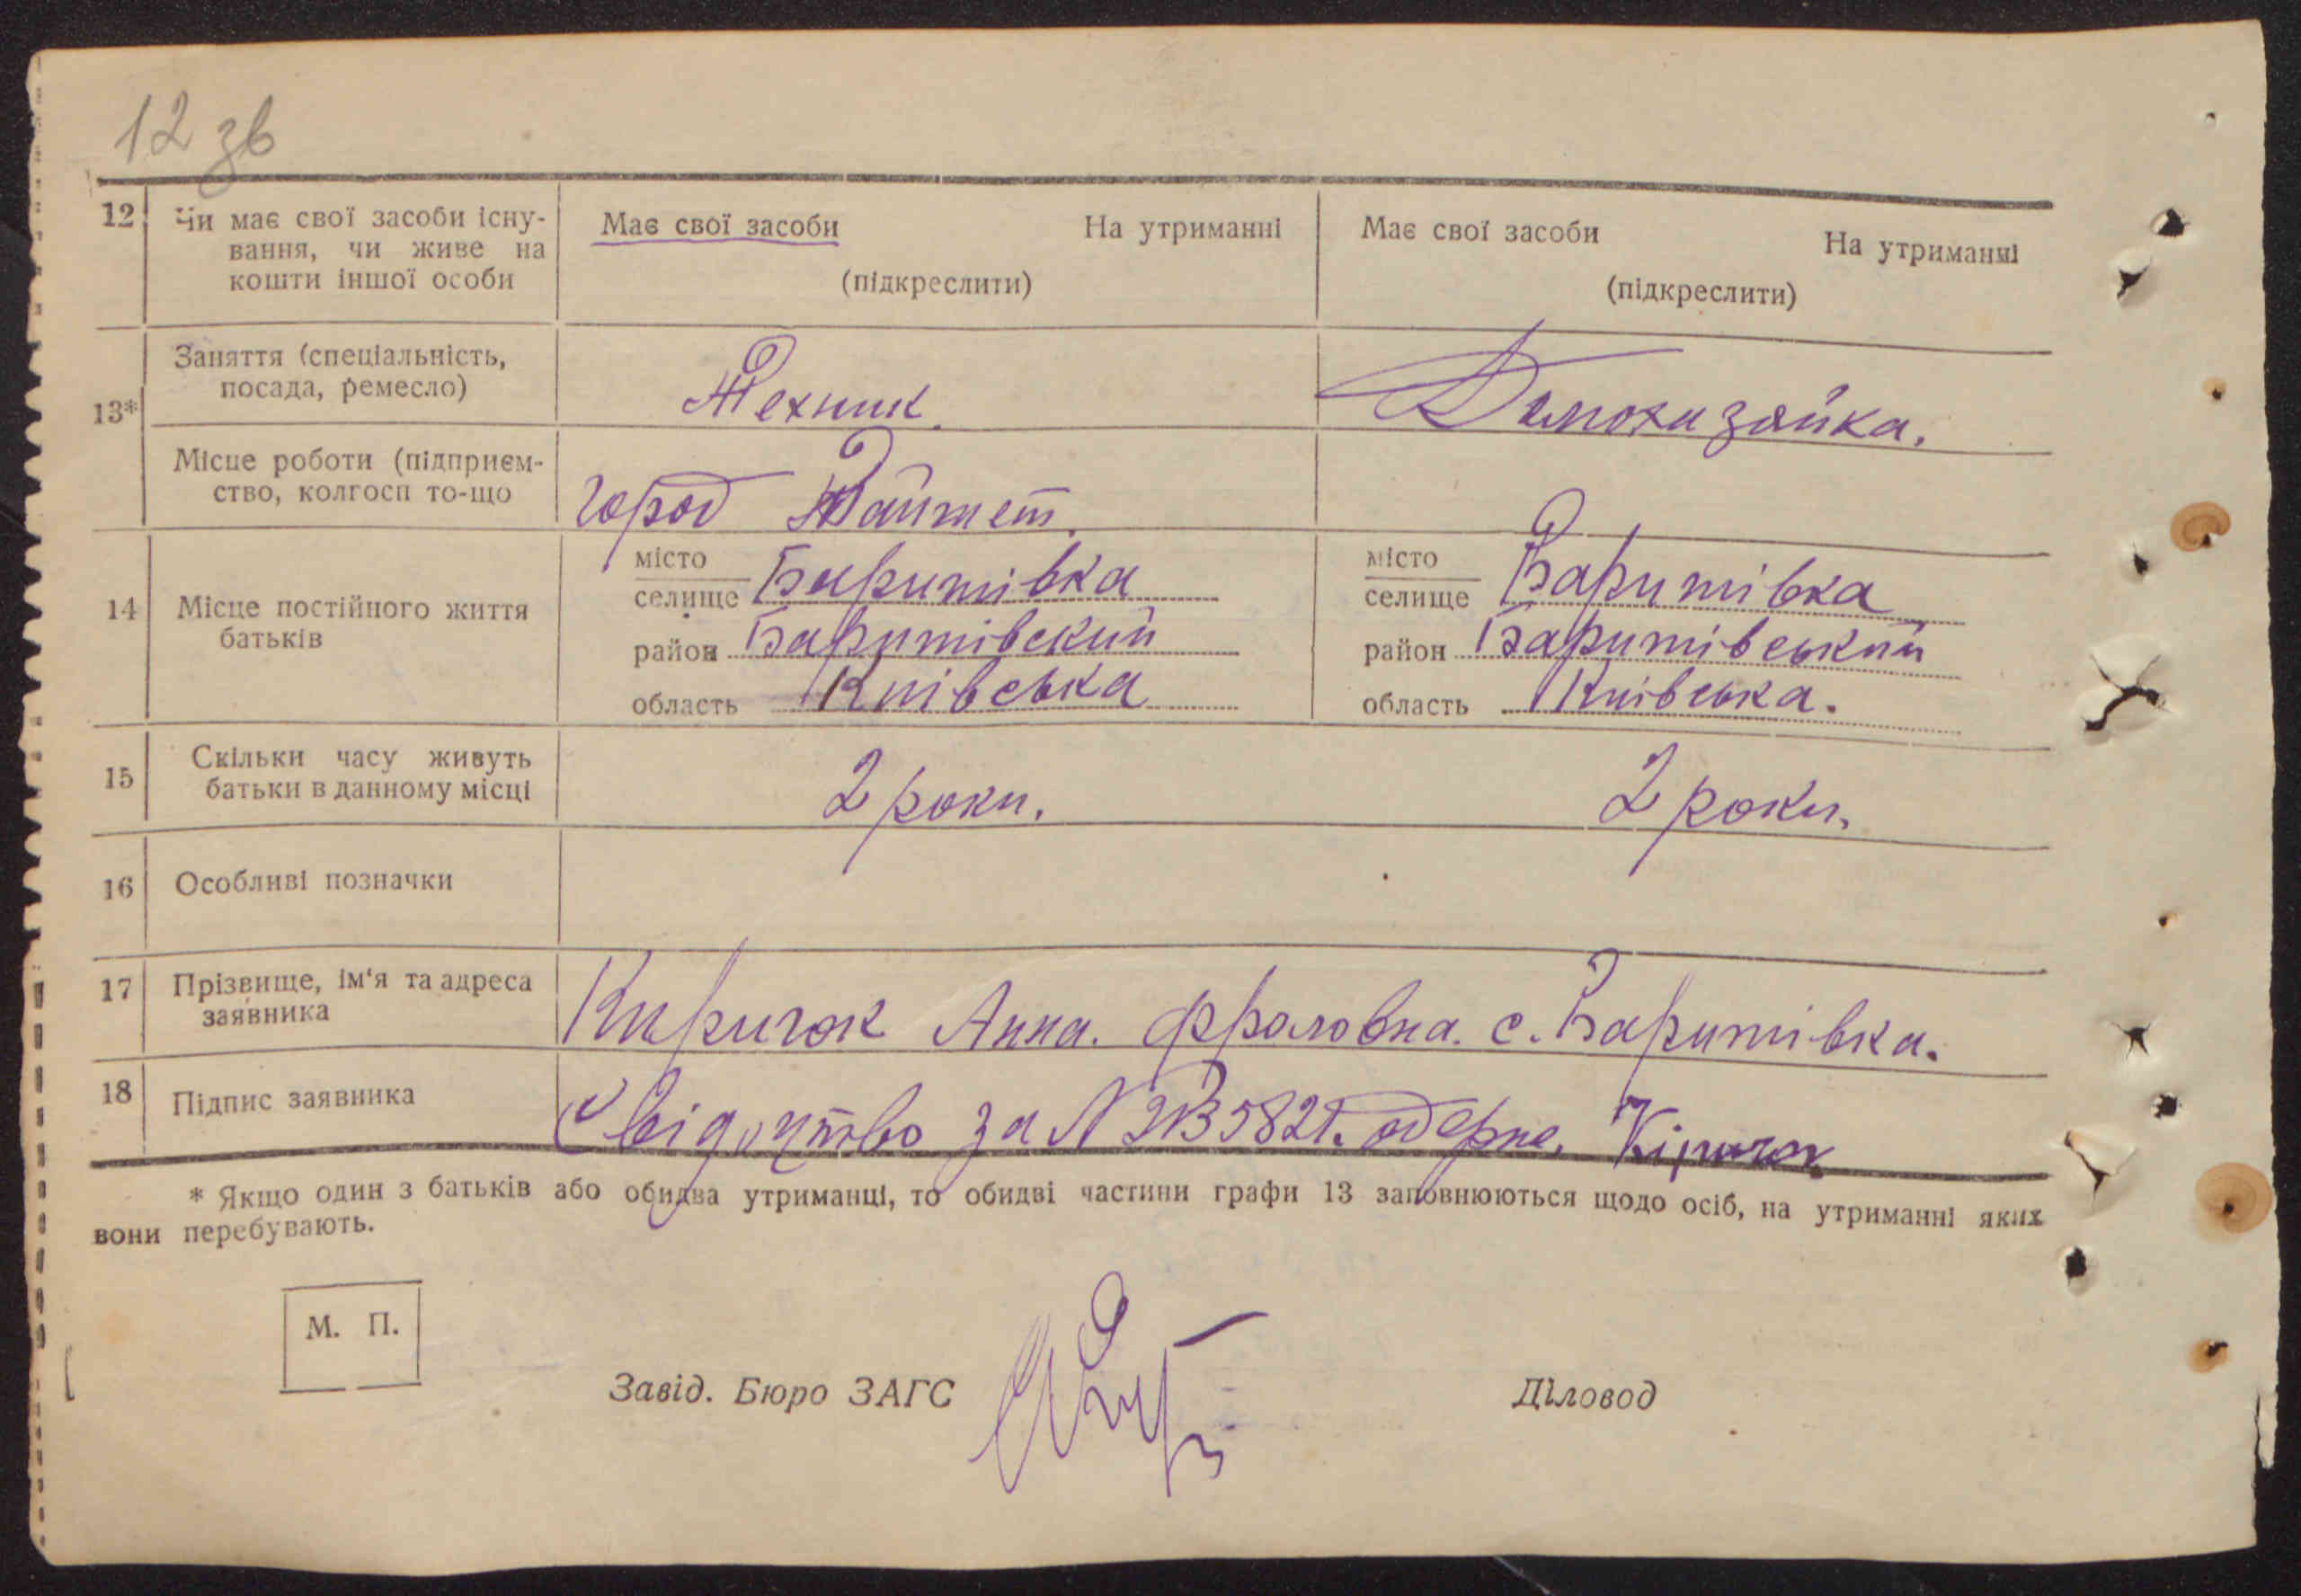 12 зв
12 Чи має свої засоби існу-
вання, чи живе на
кошти іншої особи
Має свої засоби На утриманні
(підкреслити)
Має свої засоби На утриманні
(підкреслити)
13*
Заняття (спеціальність,
посада, ремесло)
Технік.
Домохазяйка.
Місце роботи (підприєм-
ство, колгосп то-що
город Тайшет.
14 Місце постійного життя
батьків
місто
селище Баришівка
район Баришівский
область Київська
місто
селище Баришівка
район Баришівський
область Київська.
15 Скільки часу живуть
батьки в данному місці
2 роки.
2 роки.
16 Особливі позначки
17 Прізвище, ім'я та адреса
заявника
Киричок Анна. Фроловна. с. Баришівка.
18 Підпис заявника
Свідоцтво за N одерже. Кіричок
* Якщо один з батьків або обидва утриманці, то обидві частини графи 13 заповнюються щодо осіб, на утриманні яких
вони перебувають.
М. П.
Завід. Бюро ЗАГС
Діловод